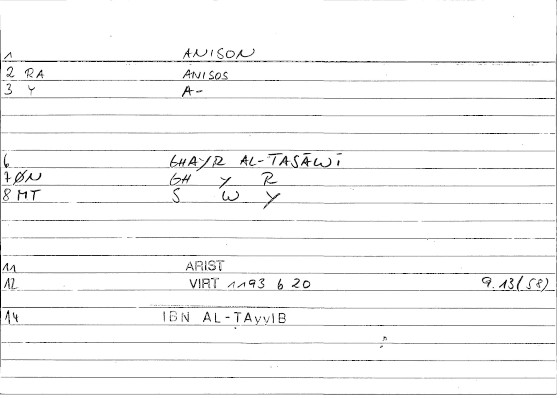 1 ANISON
2 RA ANISOS
3 Y A-
6 GHAYR AL-TASĀWĪ
7 ØN GH Y R
8 MT S W Y
11 ARIST
12 VIRT 1193 6 20 9.13(58)
14 IBN AL-TAyyIB